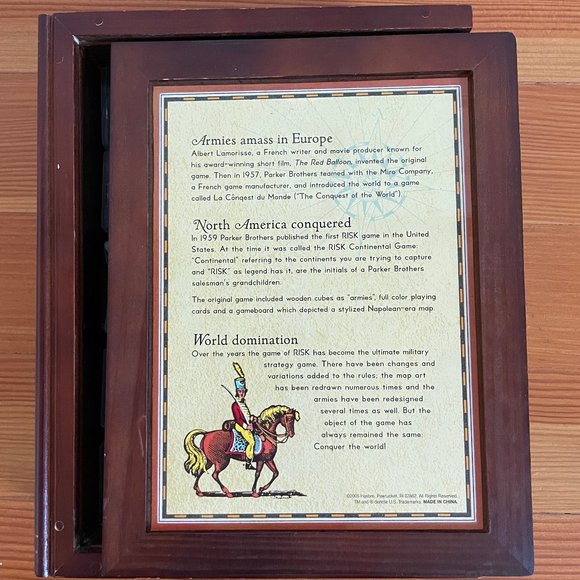 Armies amass in Europe
Albert Lamorisse, a French writer and movie producer known for
his award-winning short film, The Red Balloon, invented the original
game. Then in 1957, Parker Brothers teamed with the Miro Company,
a French game manufacturer, and introduced the world to a game
called La Cônqest du Monde ("The Conquest of the World").
North America conquered
In 1959 Parker Brothers published the first RISK game in the United
States. At the time it was called the RISK Continental Game:
"Continental" referring to the continents you are trying to capture
and "RISK" as legend has it, are the initials of a Parker Brothers
salesman's grandchildren.
The original game included wooden cubes as "armies", full color playing
cards and a gameboard which depicted a stylized Napolean-era map.
World domination
Over the years the game of RISK has become the ultimate military
strategy game. There have been changes and
variations added to the rules; the map art
has been redrawn numerous times and the
armies have been redesigned
several times as well. But the
object of the game has
always remained the same:
Conquer the world!
©2005 Hasbro, Pawtucket, RI 02862. All Rights Reserved.
TM and ® denote U.S. Trademarks. MADE IN CHINA.